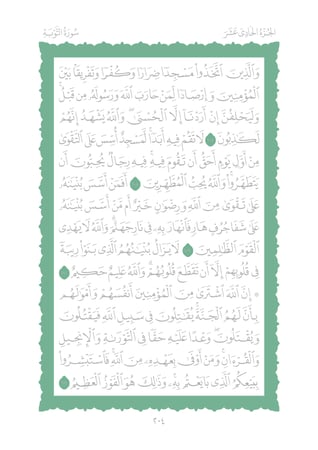 الجزء الحادي عشر
سورة التوبة
وَٱلَّذِينَ ٱتَّخَذُوا۟ مَسْجِدًا ضِرَارًا وَكُفْرًا وَتَفْرِيقًۢا بَيْنَ
ٱلْمُؤْمِنِينَ وَإِرْصَادًا لِّمَنْ حَارَبَ ٱللَّهَ وَرَسُولَهُۥ مِن قَبْلُ
وَلَيَحْلِفُنَّ إِنْ أَرَدْنَآ إِلَّا ٱلْحُسْنَىٰ وَٱللَّهُ يَشْهَدُ إِنَّهُمْ
لَكَٰذِبُونَ لَا تَقُمْ فِيهِ أَبَدًا لَّمَسْجِدٌ أُسِّسَ عَلَى ٱلتَّقْوَىٰ
مِنْ أَوَّلِ يَوْمٍ أَحَقُّ أَن تَقُومَ فِيهِ فِيهِ رِجَالٌ يُحِبُّونَ أَن
يَتَطَهَّرُوا۟ وَٱللَّهُ يُحِبُّ ٱلْمُطَّهِّرِينَ أَفَمَنْ أَسَّسَ بُنْيَٰنَهُۥ
عَلَىٰ تَقْوَىٰ مِنَ ٱللَّهِ وَرِضْوَٰنٍ خَيْرٌ أَم مَّنْ أَسَّسَ بُنْيَٰنَهُۥ
عَلَىٰ شَفَا جُرُفٍ هَارٍ فَٱنْهَارَ بِهِۦ فِى نَارِ جَهَنَّمَ وَٱللَّهُ لَا يَهْدِى
ٱلْقَوْمَ ٱلظَّٰلِمِينَ لَا يَزَالُ بُنْيَٰنُهُمُ ٱلَّذِى بَنَوْا۟ رِيبَةً
فِى قُلُوبِهِمْ إِلَّآ أَن تَقَطَّعَ قُلُوبُهُمْ وَٱللَّهُ عَلِيمٌ حَكِيمٌ
۞ إِنَّ ٱللَّهَ ٱشْتَرَىٰ مِنَ ٱلْمُؤْمِنِينَ أَنفُسَهُمْ وَأَمْوَٰلَهُم
بِأَنَّ لَهُمُ ٱلْجَنَّةَ يُقَٰتِلُونَ فِى سَبِيلِ ٱللَّهِ فَيَقْتُلُونَ
وَيُقْتَلُونَ وَعْدًا عَلَيْهِ حَقًّا فِى ٱلتَّوْرَىٰةِ وَٱلْإِنجِيلِ
وَٱلْقُرْءَانِ وَمَنْ أَوْفَىٰ بِعَهْدِهِۦ مِنَ ٱللَّهِ فَٱسْتَبْشِرُوا۟
بِبَيْعِكُمُ ٱلَّذِى بَايَعْتُم بِهِۦ وَذَٰلِكَ هُوَ ٱلْفَوْزُ ٱلْعَظِيمُ
٢٠٤